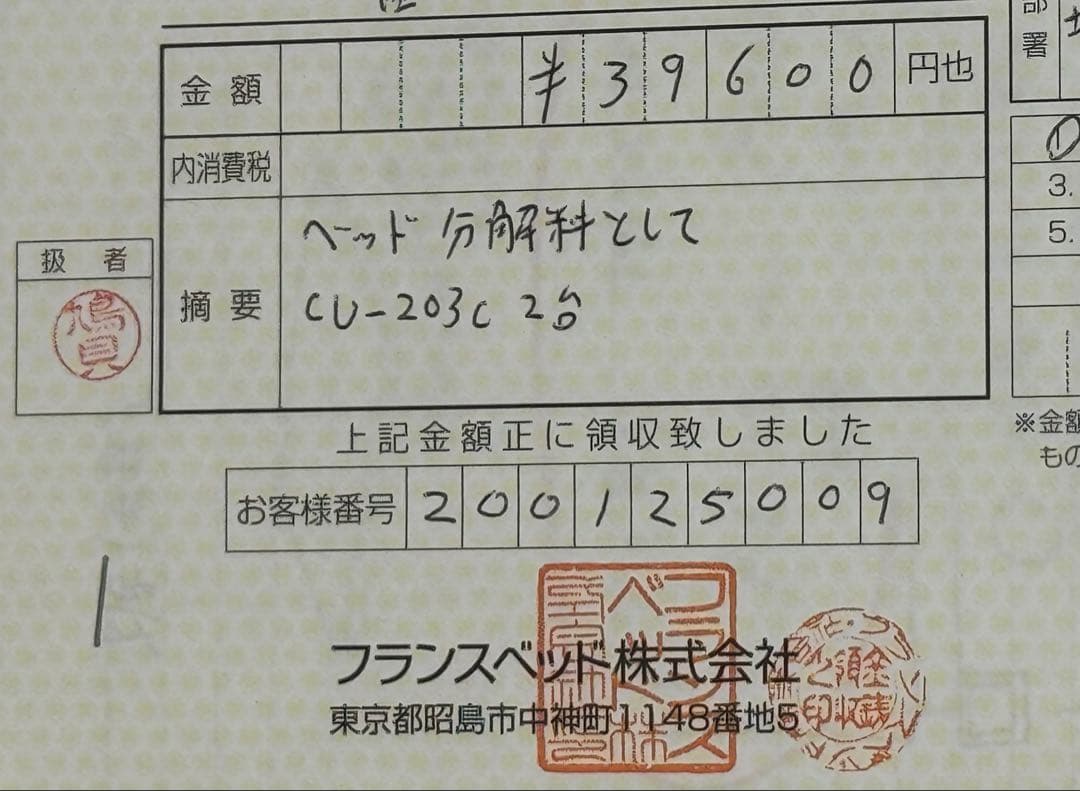 部署
金額 ¥39600 円也
内消費税
摘要 ベッド分解料として
CU-203C 2台
扱者
上記金額正に領収致しました
お客様番号 200125009
フランスベッド株式会社
東京都昭島市中神町1148番地5
①
3.
5.
※金額
もの